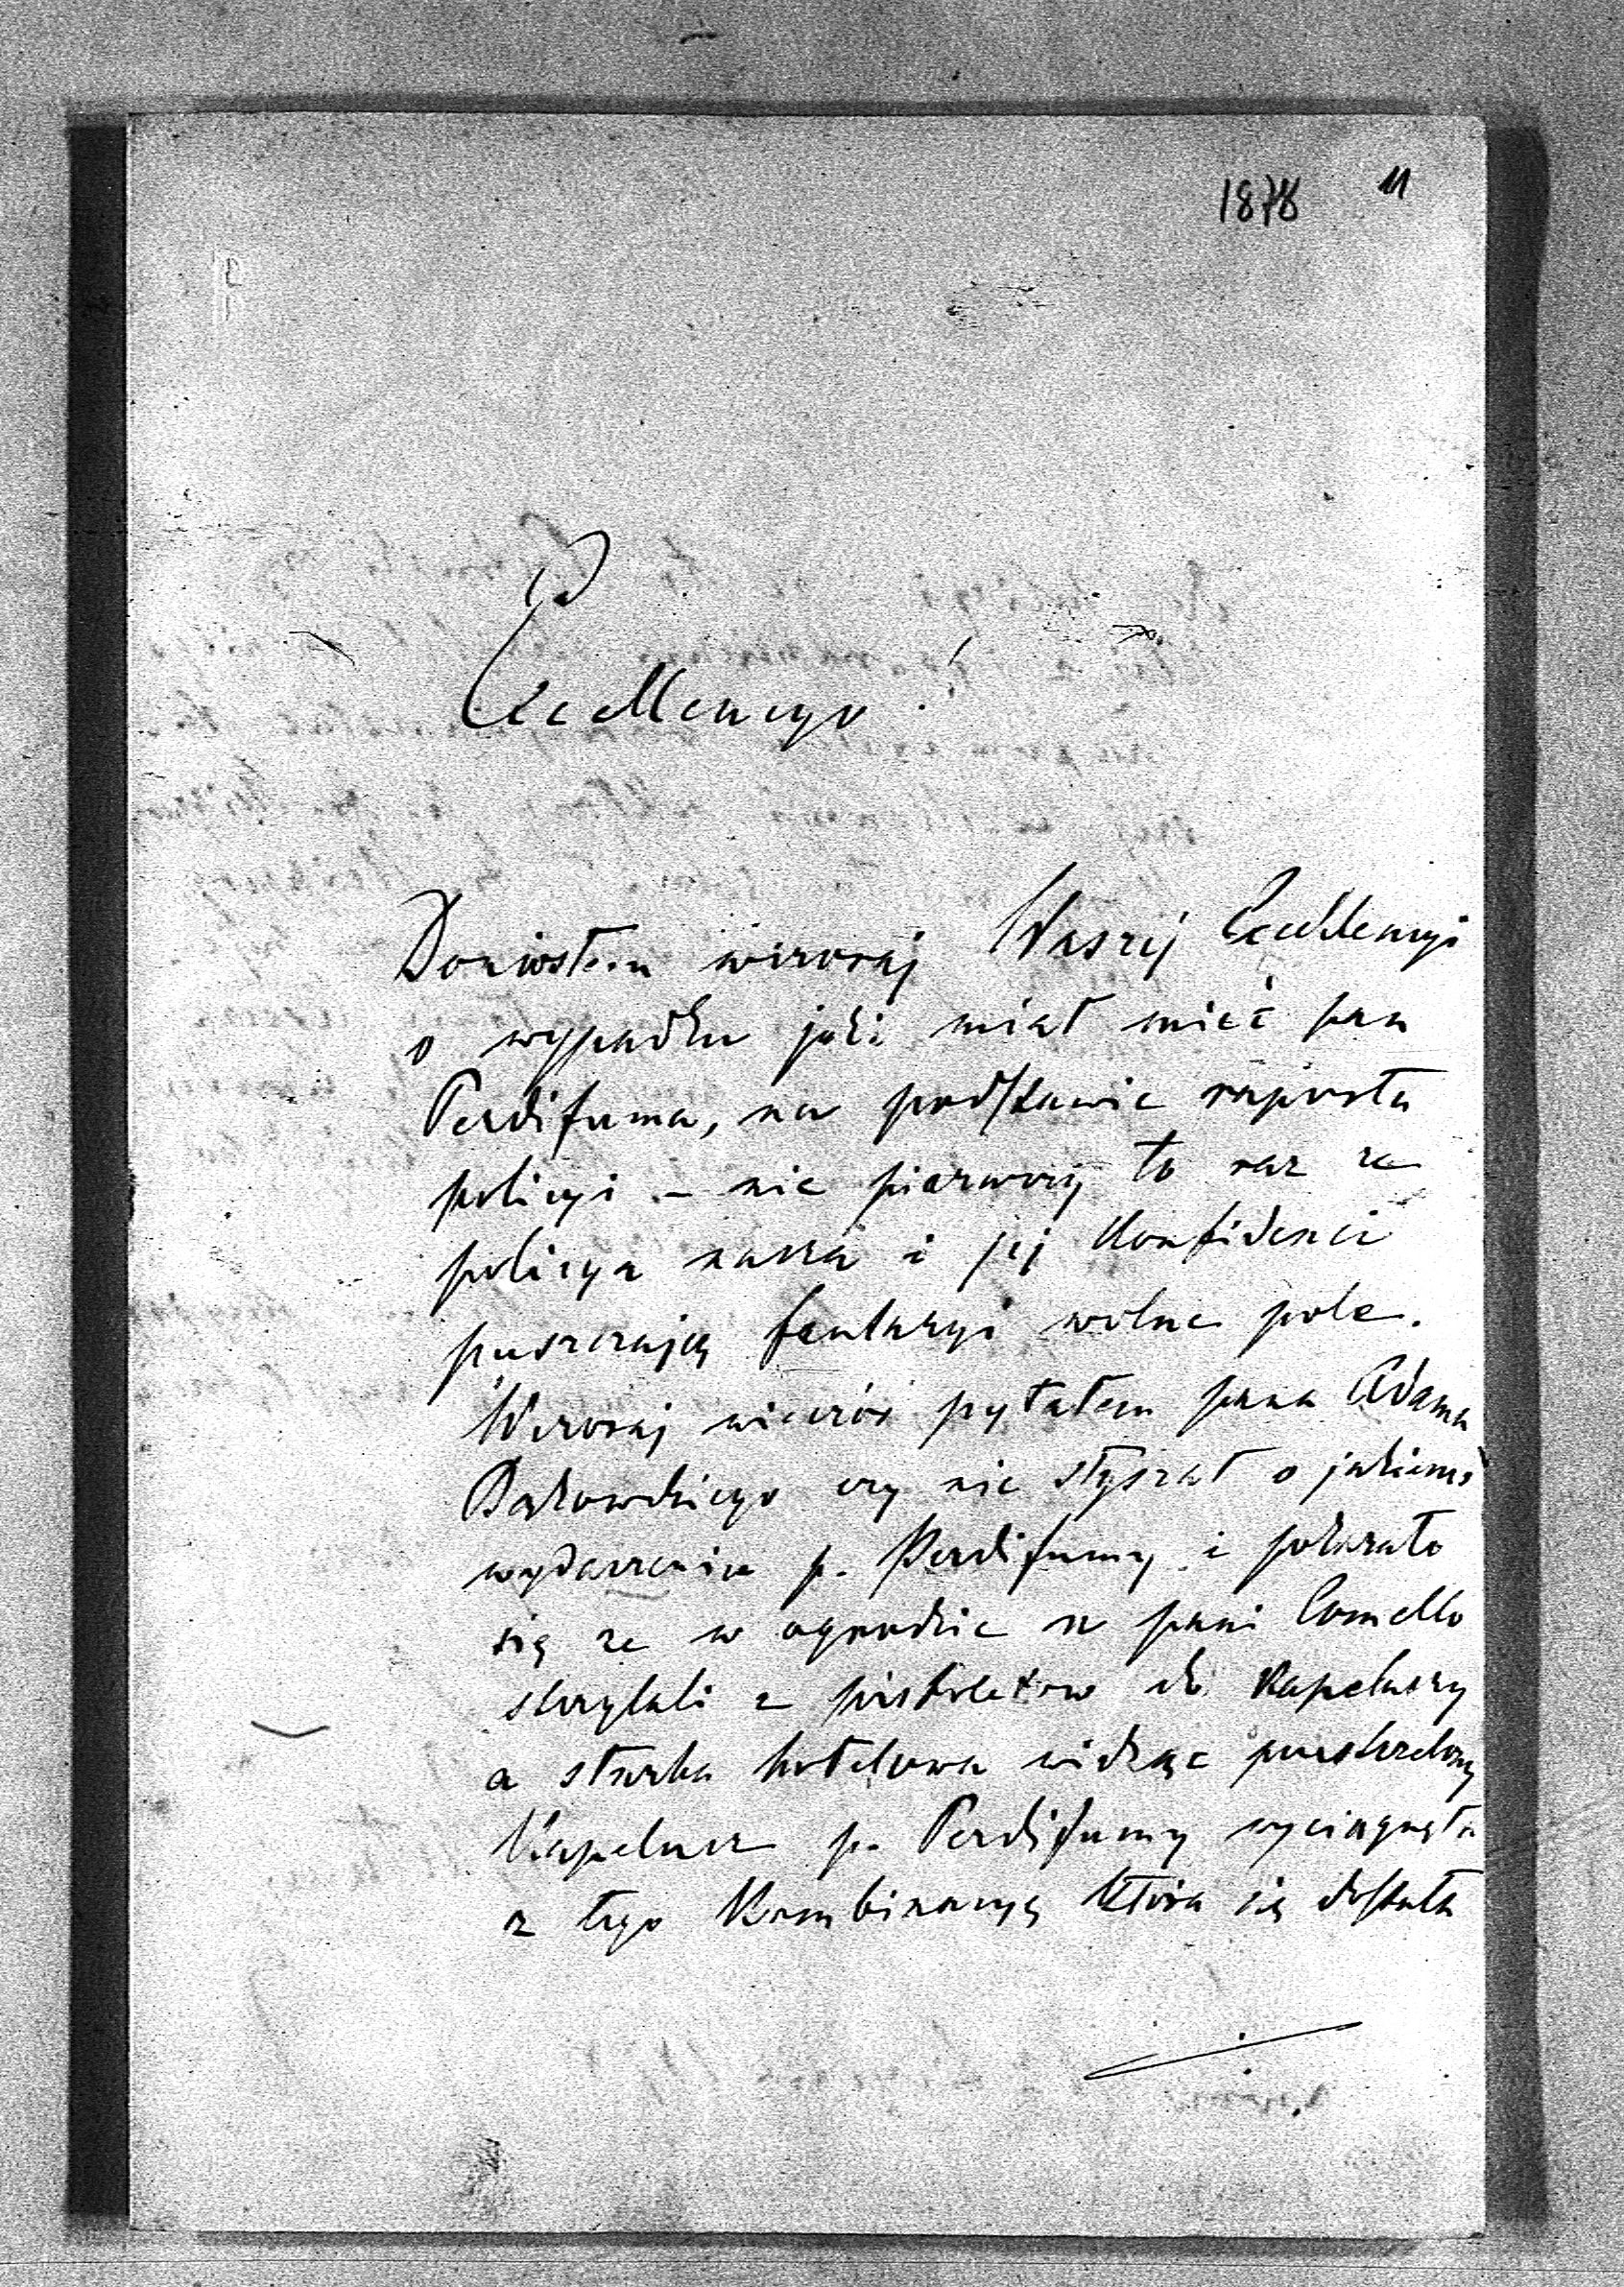 1878 11
Excellencyo!
Doniosłem wczoraj Waszéj Excellencyi
o wypadku jaki miał mieć pan
Perdifuma, na podstawie raportu
policyi – nie pierwszy to raz ze
policya nasza i jej Konfidenci
puszczają fantazyi wolne pole.
Wczoraj wieczór pytałem pana Adama
czy nie słyszał o jakiemś
wydarzeniu p. Perdifumy i pokazało
się ze w ogrodzie u pani Comello
strzylali z pistoletow do Kapeluszy
a służba hotelowa widząc przestrzelony
Kapelusz p. Perdifumy wyciągnęła
z tego Kombinacyą która się dostała